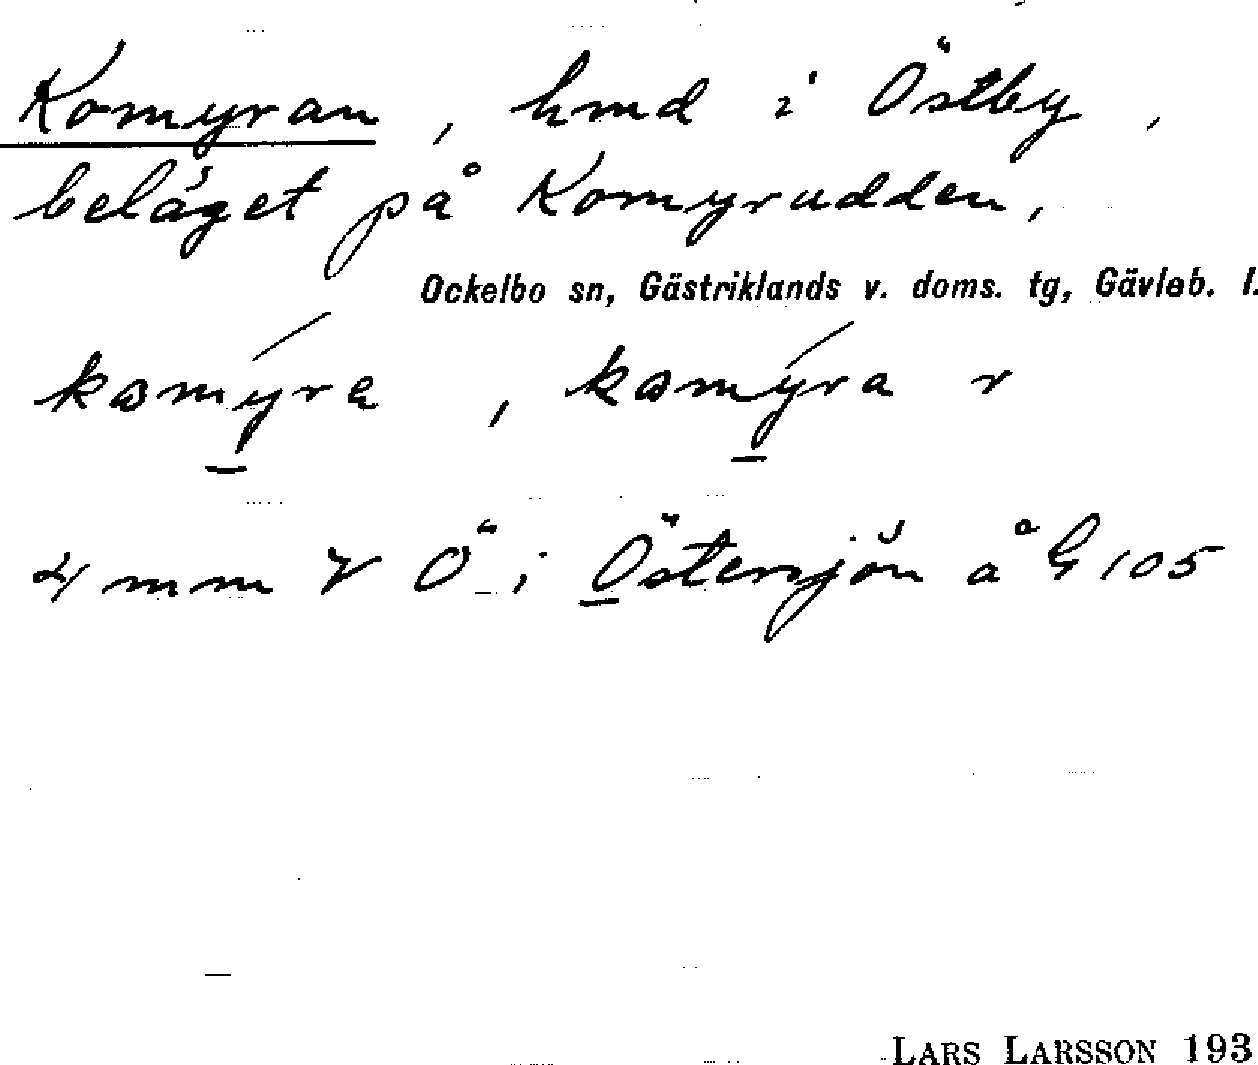 Komyran, hmd i Östby,
beläget på Komyrudden,
Ockelbo sn, Gästriklands v. doms. tg, Gävleb. l.
komýra, komýra r
4 mm V Ö i Östersjön å G 105
LARS LARSSON 193